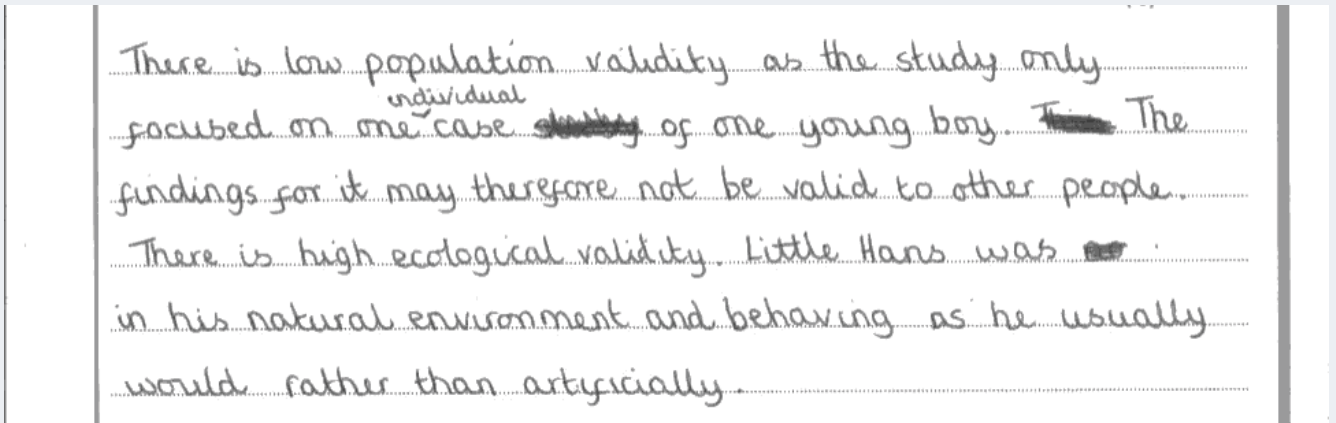 There is low population validity as the study only
focused on one individual case of one young boy. The
findings for it may therefore not be valid to other people.
There is high ecological validity. Little Hans was
in his natural environment and behaving as he usually
would rather than artificially.